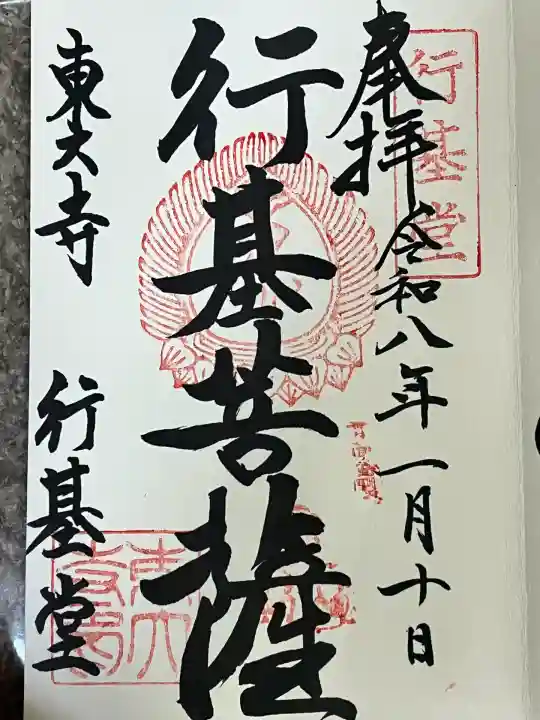 奉拝 令和八年一月十日
行基堂
行基菩薩
東大寺 行基堂